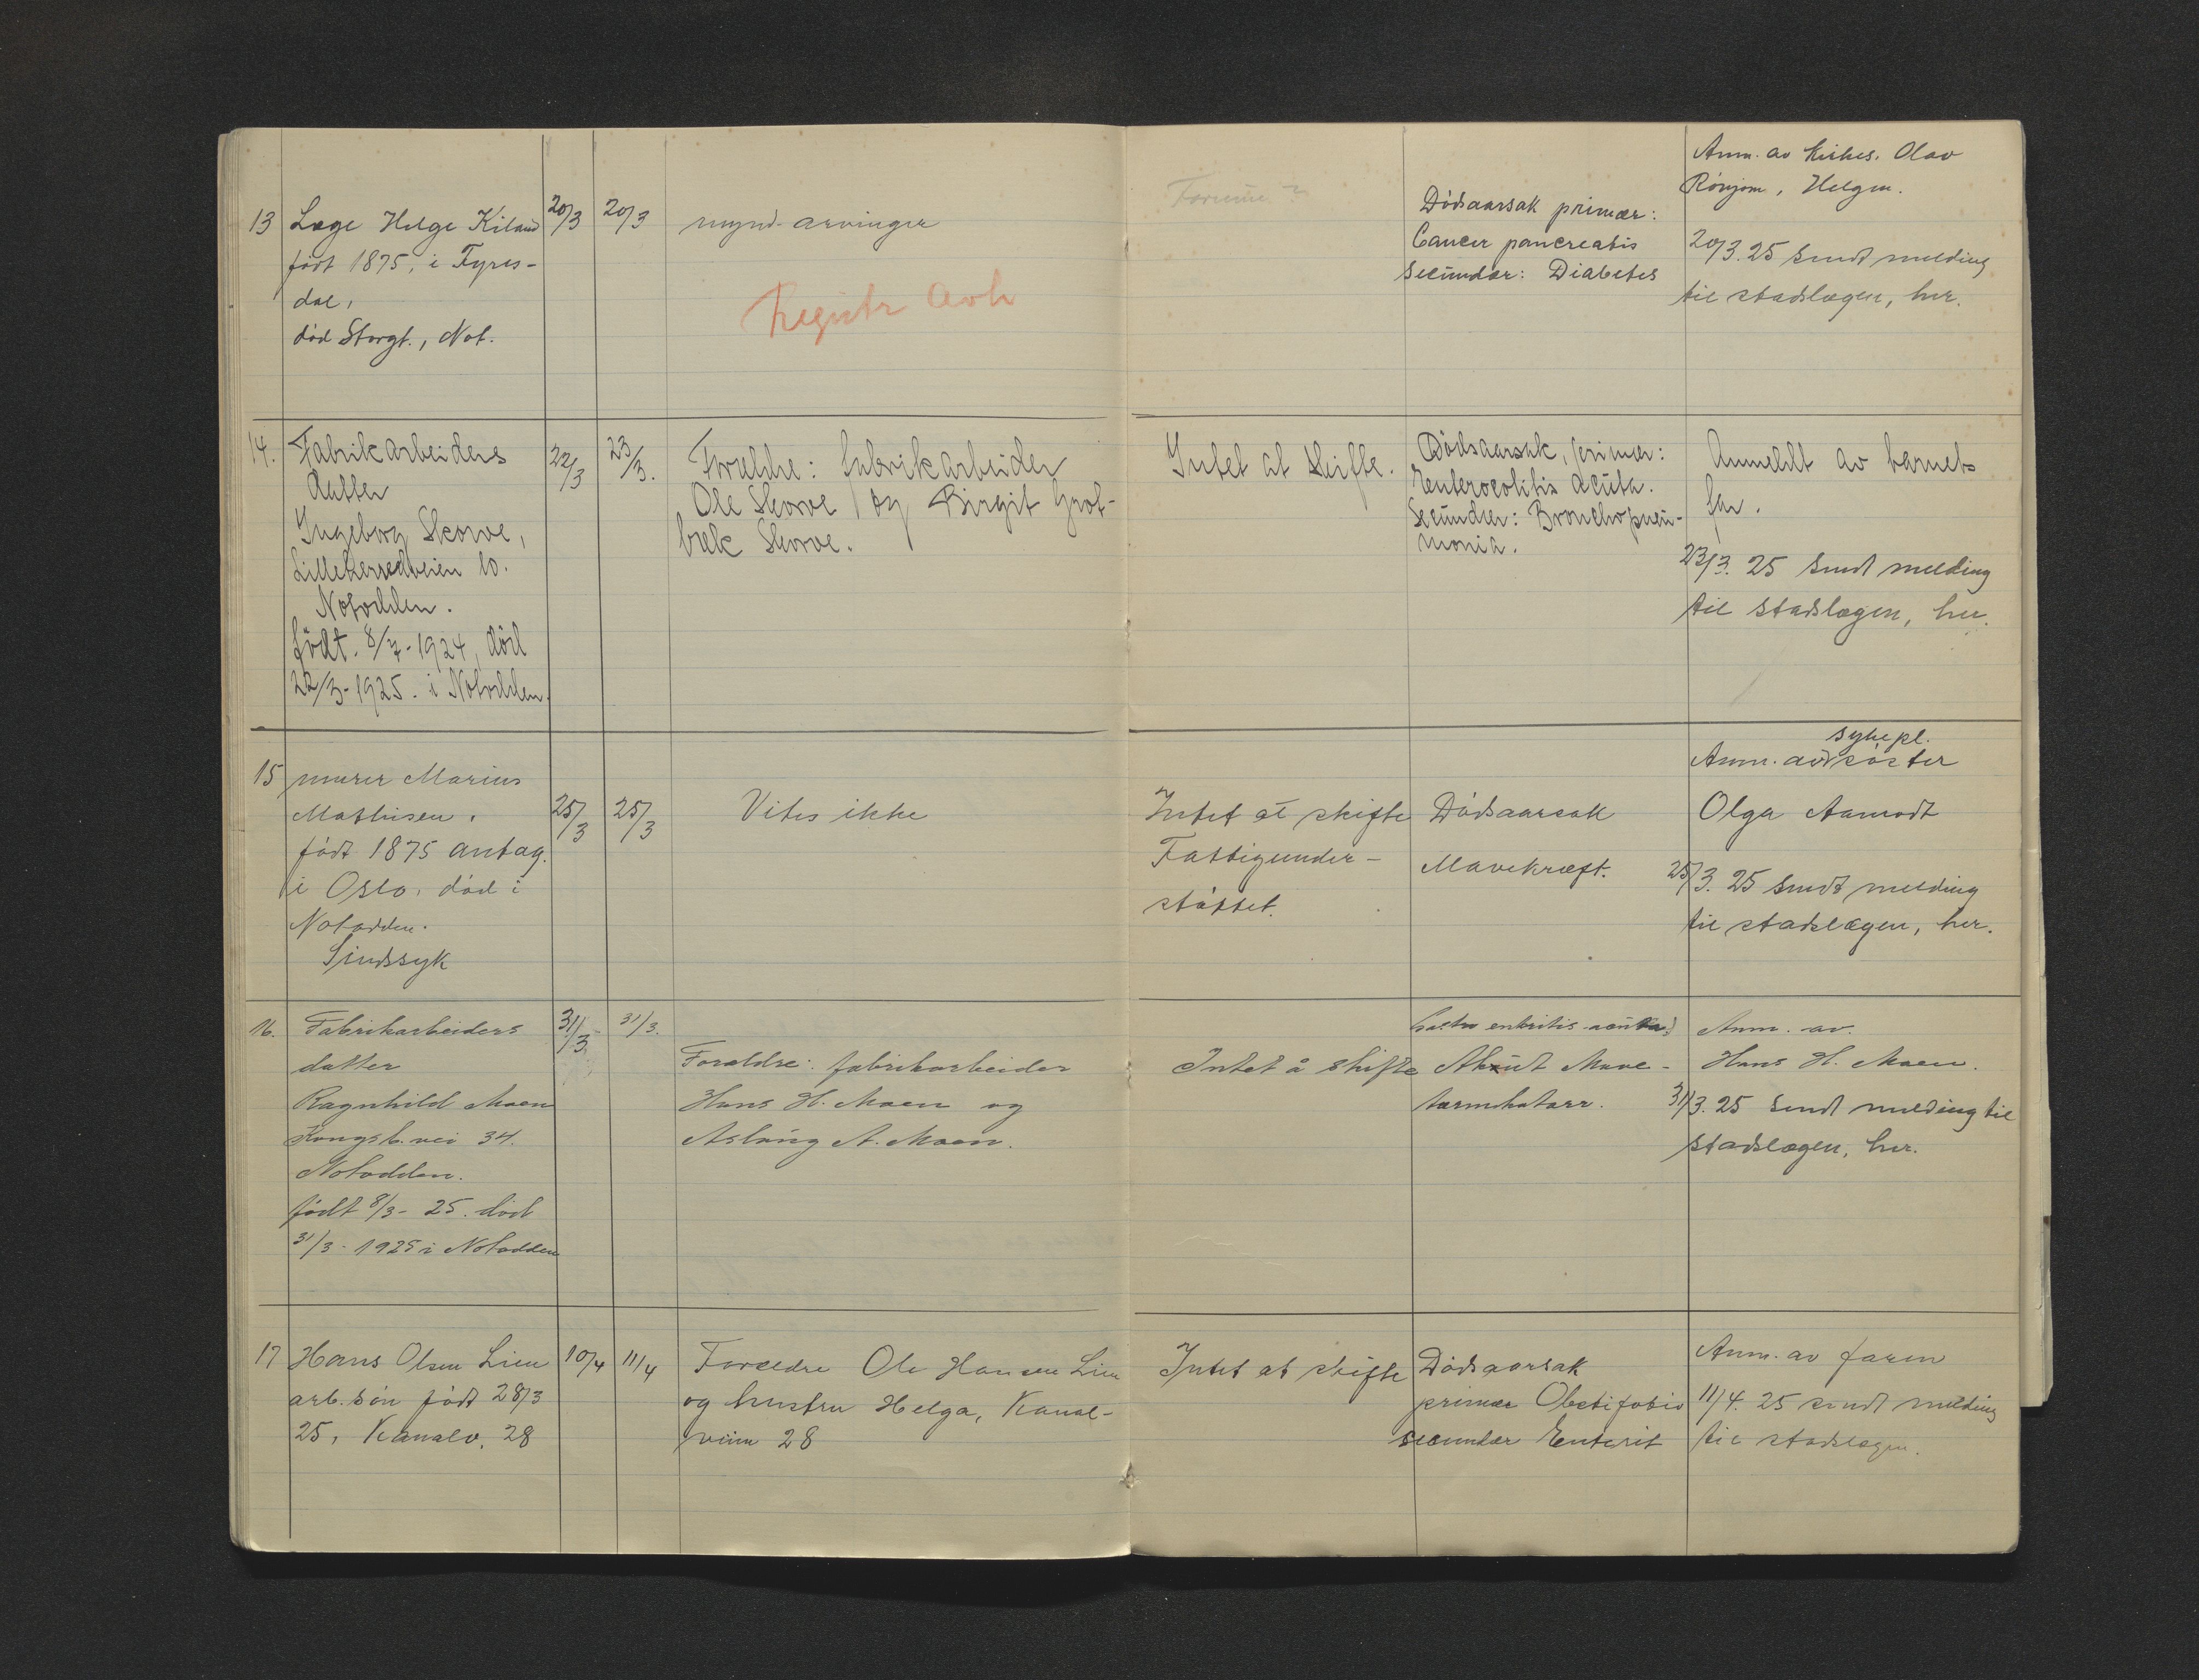 13 Læge Helge Kiland 20/3 20/3 mynd. arvinger
født 1875, i Fyres-
dal,
død Storgt., Not.
Registr Avh
Formue ?
Dødsaarsak primær:
Cancer pancreatis
secundær: Diabetes
Anm. av Kirkes. Olav
Helgen.
20/3. 25 sendt melding
til stadslægen, her.
14. Fabrikarbeiders 22/3 23/3.
datter
Ingeborg Skorve,
Lilleherredveien 10.
Notodden.
født. 8/7-1924, død
22/3-1925. i Notodden.
Forældre: fabrikarbeider
Ole Skorve og Birgit Grot-
bæk Skorve.
Intet at skifte.
Dødsaarsak, primær:
Enterocolitis acuta.
Secundær: Bronchopneu-
monia.
Anmeldt av barnets
far.
23/3. 25 sendt melding
til stadslægen, her.
15 murer Marius
Mathisen. 25/3 25/3 Vites ikke
født 1875 antag.
i Oslo, død i
Notodden.
Sindssyk
Intet at skifte
Fattigunder-
støttet.
Dødsaarsak
Mavekræft.
sykepl.
Anm. av søster
Olga Aamodt
25/3. 25 sendt melding
til stadslægen, her.
16. Fabrikarbeiders 31/3 31/3.
datter
Ragnhild Moen
Kongsb.vei 34.
Notodden.
født 8/3- 25. død
31/3- 1925 i Notodden
Forældre: fabrikarbeider
Hans H. Moen og
Aslaug A. Moen.
Intet å skifte
Gastro enteritis acuta)
Akut Mave-
tarmkatarr.
Anm. av.
Hans H. Moen.
31/3. 25 sendt melding til
stadslægen, her.
17 Hans Olsen Lien 10/4 11/4
arb. søn født 28/3
25, Kanalv. 28
Forældre Ole Hansen Lien
og hustru Helga, Kanal-
veien 28
Intet at skifte
Dødsaarsak
primær Obstipatio
secundær Enterit
Anm. av faren
11/4. 25 sendt melding
til stadslægen.